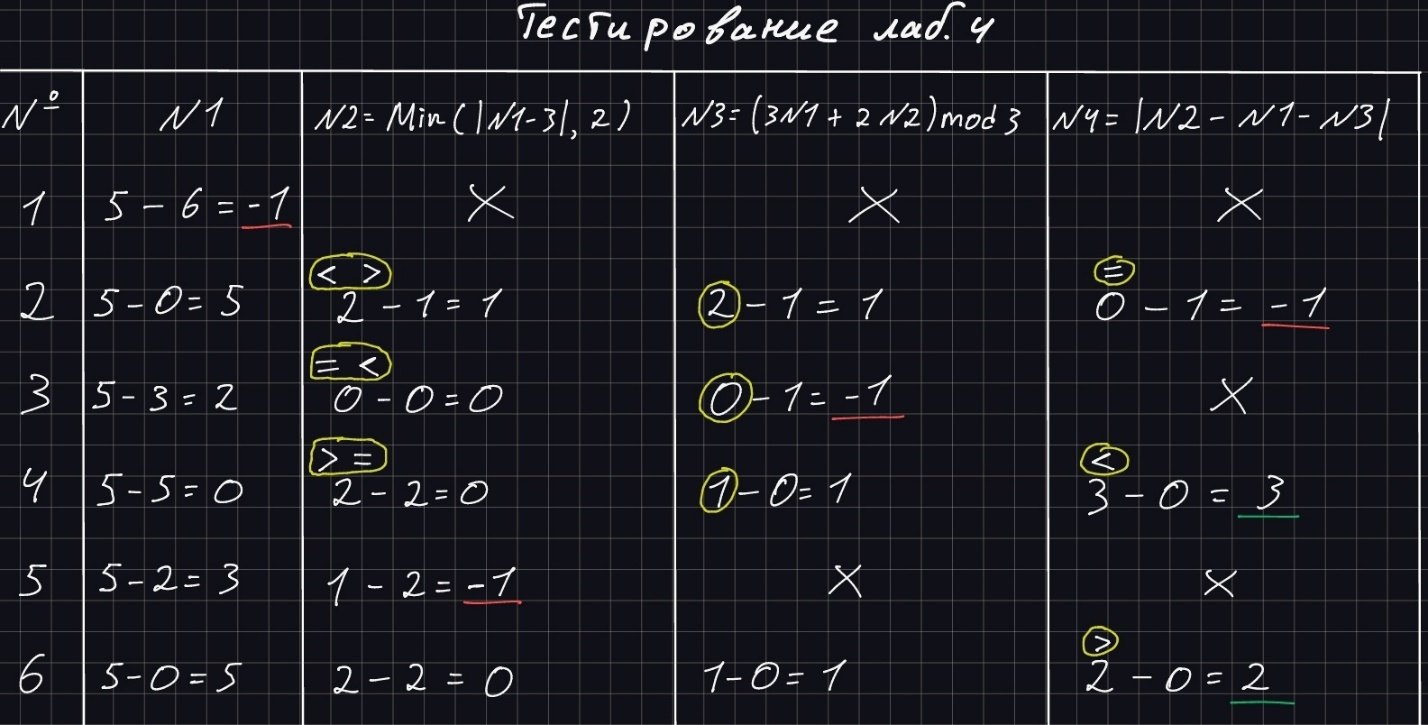 Тестирование лаб. 4
№ N1 N2 = Min(|N1-3|, 2) N3 = (3N1 + 2N2) mod 3 N4 = |N2 - N1 - N3|
1 5 - 6 = -1 X X X
< > =
2 5 - 0 = 5 2 - 1 = 1 2 - 1 = 1 0 - 1 = -1
= <
3 5 - 3 = 2 0 - 0 = 0 0 - 1 = -1 X
> = <
4 5 - 5 = 0 2 - 2 = 0 1 - 0 = 1 3 - 0 = 3
5 5 - 2 = 3 1 - 2 = -1 X X
>
6 5 - 0 = 5 2 - 2 = 0 1 - 0 = 1 2 - 0 = 2